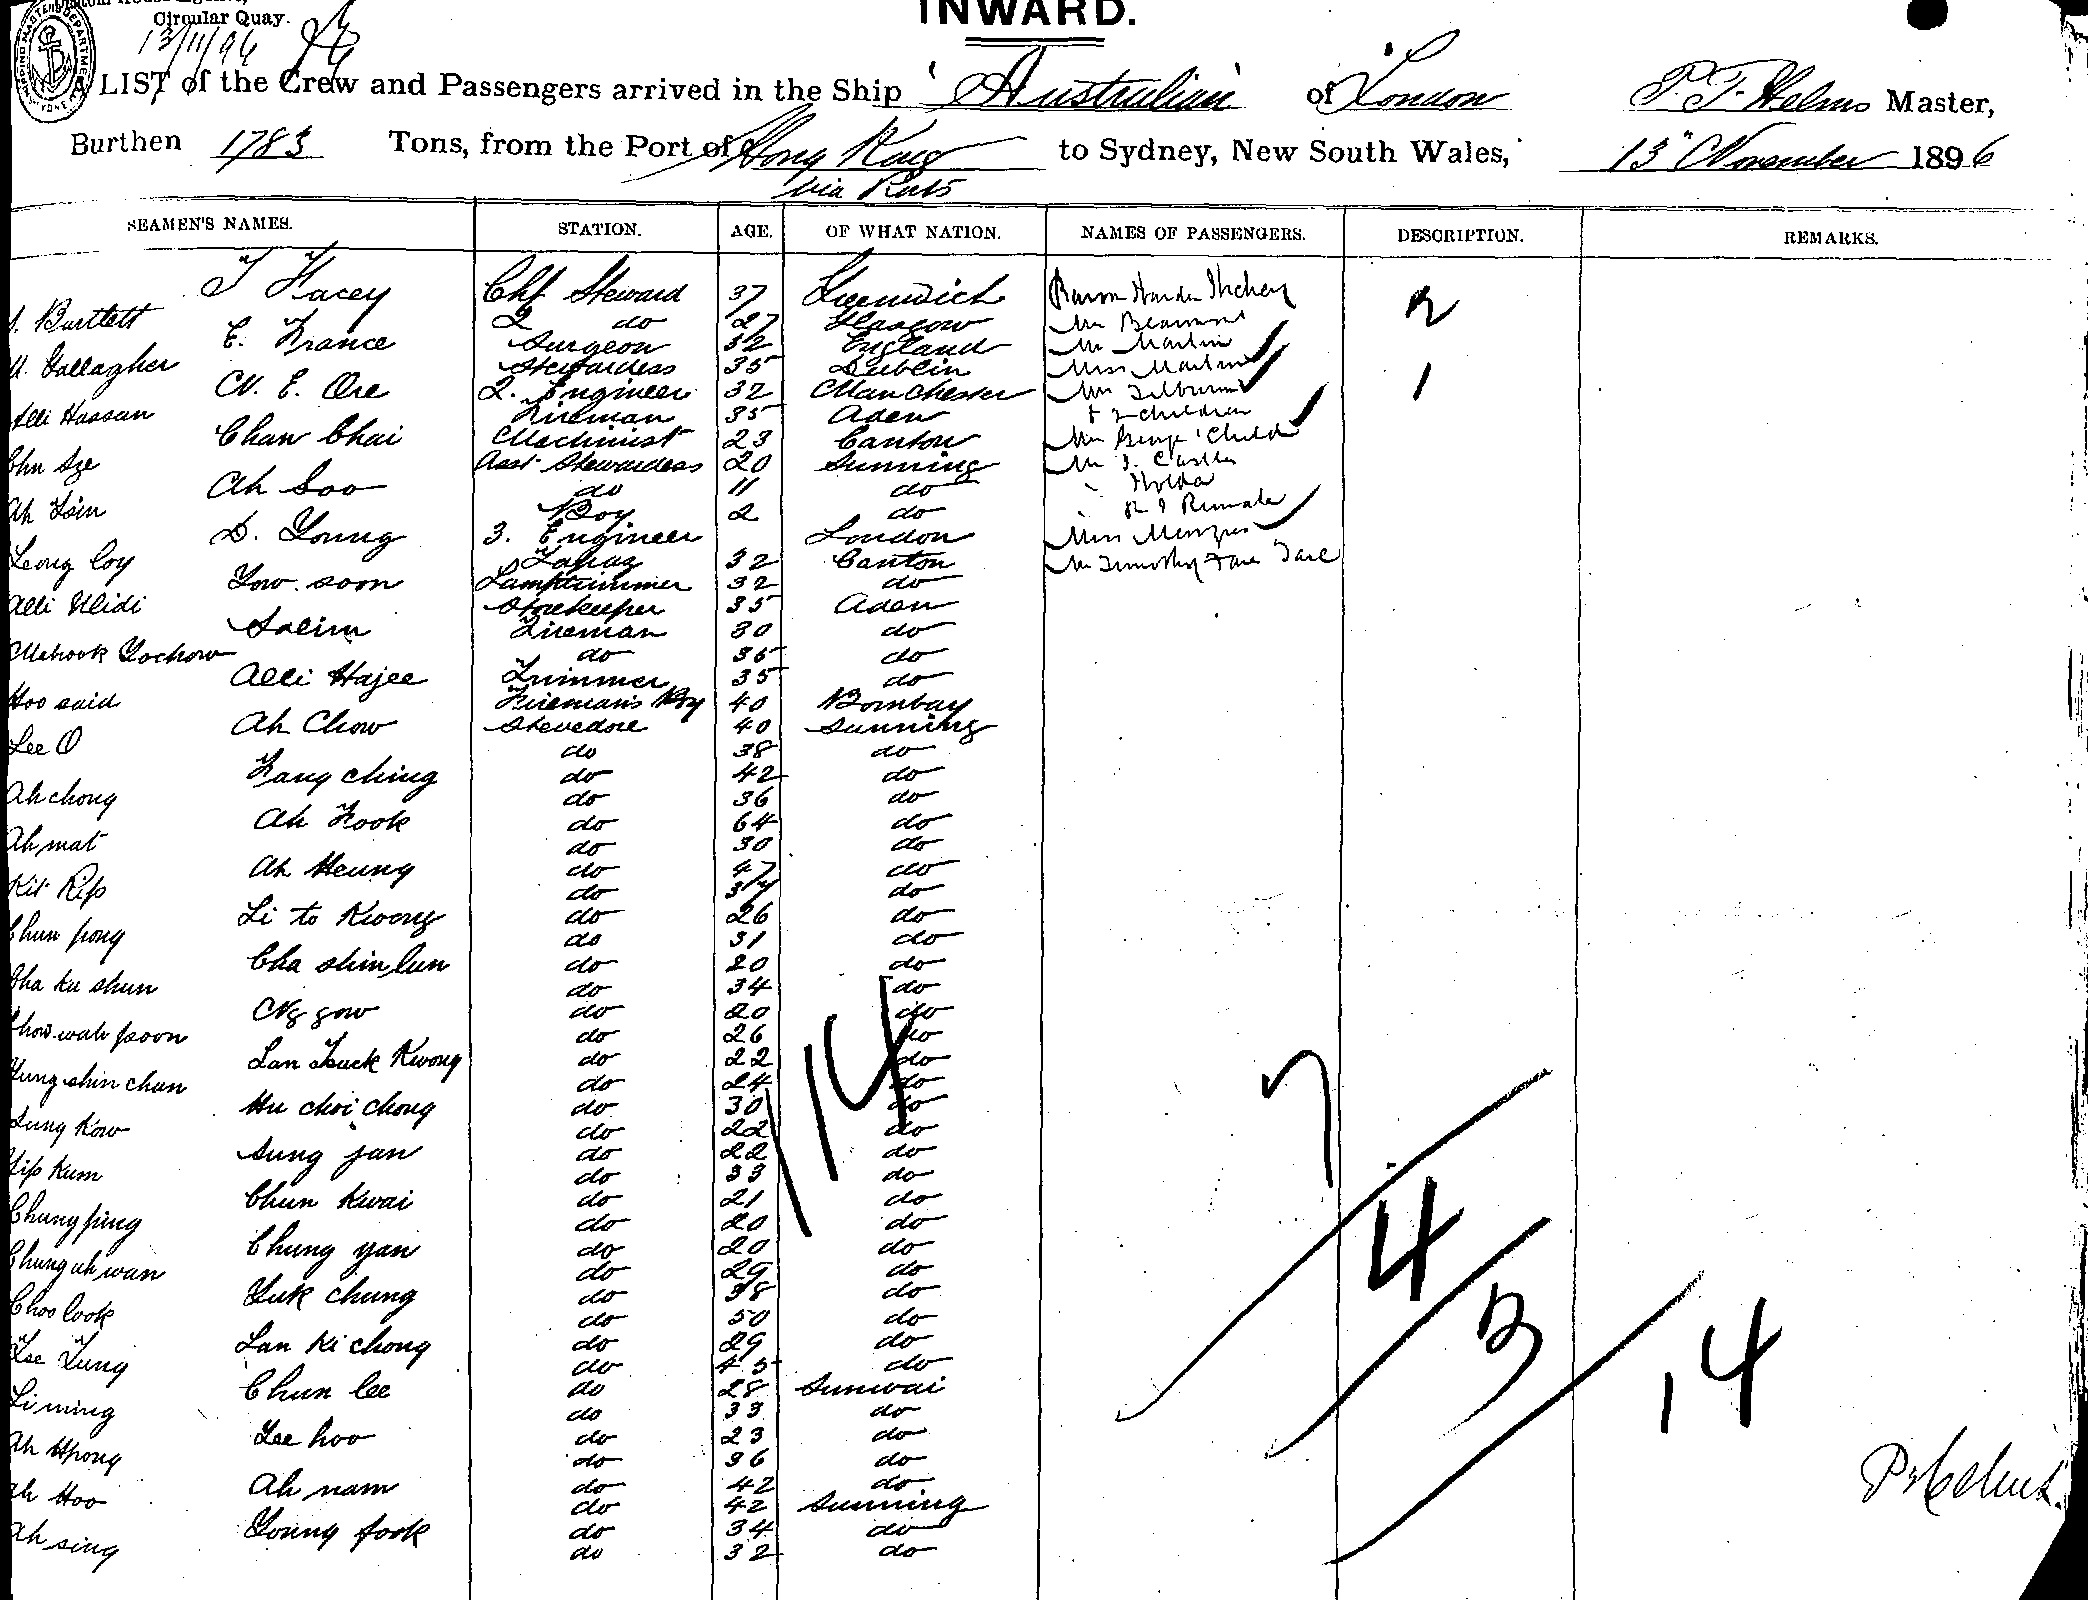 INWARD.
Circular Quay.
13/11/96
LIST of the Crew and Passengers arrived in the Ship 'Australian' of London P. T. Helms Master,
Burthen 1783 Tons, from the Port of Hong Kong to Sydney, New South Wales, 13" November 1896
via Ports
SEAMEN'S NAMES. STATION. AGE. OF WHAT NATION. NAMES OF PASSENGERS. DESCRIPTION. REMARKS.
Chf Steward 37 Greenwich Baron Harden Hickey 2
Bartlett 2 do 27 Glasgow Mr Beaumont
E. France Surgeon 32 England Mr Martin
Gallagher Stewardess 35 Dublin Miss Martin
W. E. Ore 2. Engineer 32 Manchester Mr 1
Alli Hassan Fireman 35 Aden + 2 children
Chan Chai Machinist 23 Canton Mr George Child
Chu Sze Asst Stewardess 20 Sunning Mr J. Castles
Ah Soo do 11 do
Ah Boy 2 do
D. Young 3. Engineer London Miss Menzies
Leong Coy 32 Canton Mr Timothy
Yow soon Lamptrimmer 32 do
Alli Storekeeper 35 Aden
Salim Fireman 30 do
do 36 do
Alli Hajee Trimmer 35 do
Hoo said Fireman's Boy 40 Bombay
Ah Chow Stevedore 40 Sunning
Lee O do 38 do
Fang ching do 42 do
Ah chong do 36 do
Ah Fook do 64 do
Ah mat do 30 do
Ah Heung do 47 do
Kit Kip do 37 do
Li to Kwong do 26 do
Chun pong do 31 do
Cha shin lun do 20 do
Cha ku shun do 34 do
Ng gow do 20 do
Chow wah poon do 26 do
Lan Tsuck Kwong do 22 do
Yung shin chun do 24 do
Hu choi chong do 30 do
Sung Kow do 22 do
Sung jan do 22 do
Yip Kum do 33 do
Chun Kwai do 21 do
Chung ping do 20 do
Chung yan do 20 do
Chung uh wan do 29 do
Yuk chung do 38 do
Choo look do 50 do
Lan Ki chong do 29 do
Lee Tung do 45 do
Chun lee do 28 Sunwai
Li ming do 33 do
Lee hoo do 23 do
Ah do 36 do
Ah nam do 42 do
Ah Hoo do 42 Sunning
Young fook do 34 do
Ah sing do 32 do
114
7
4
3
14